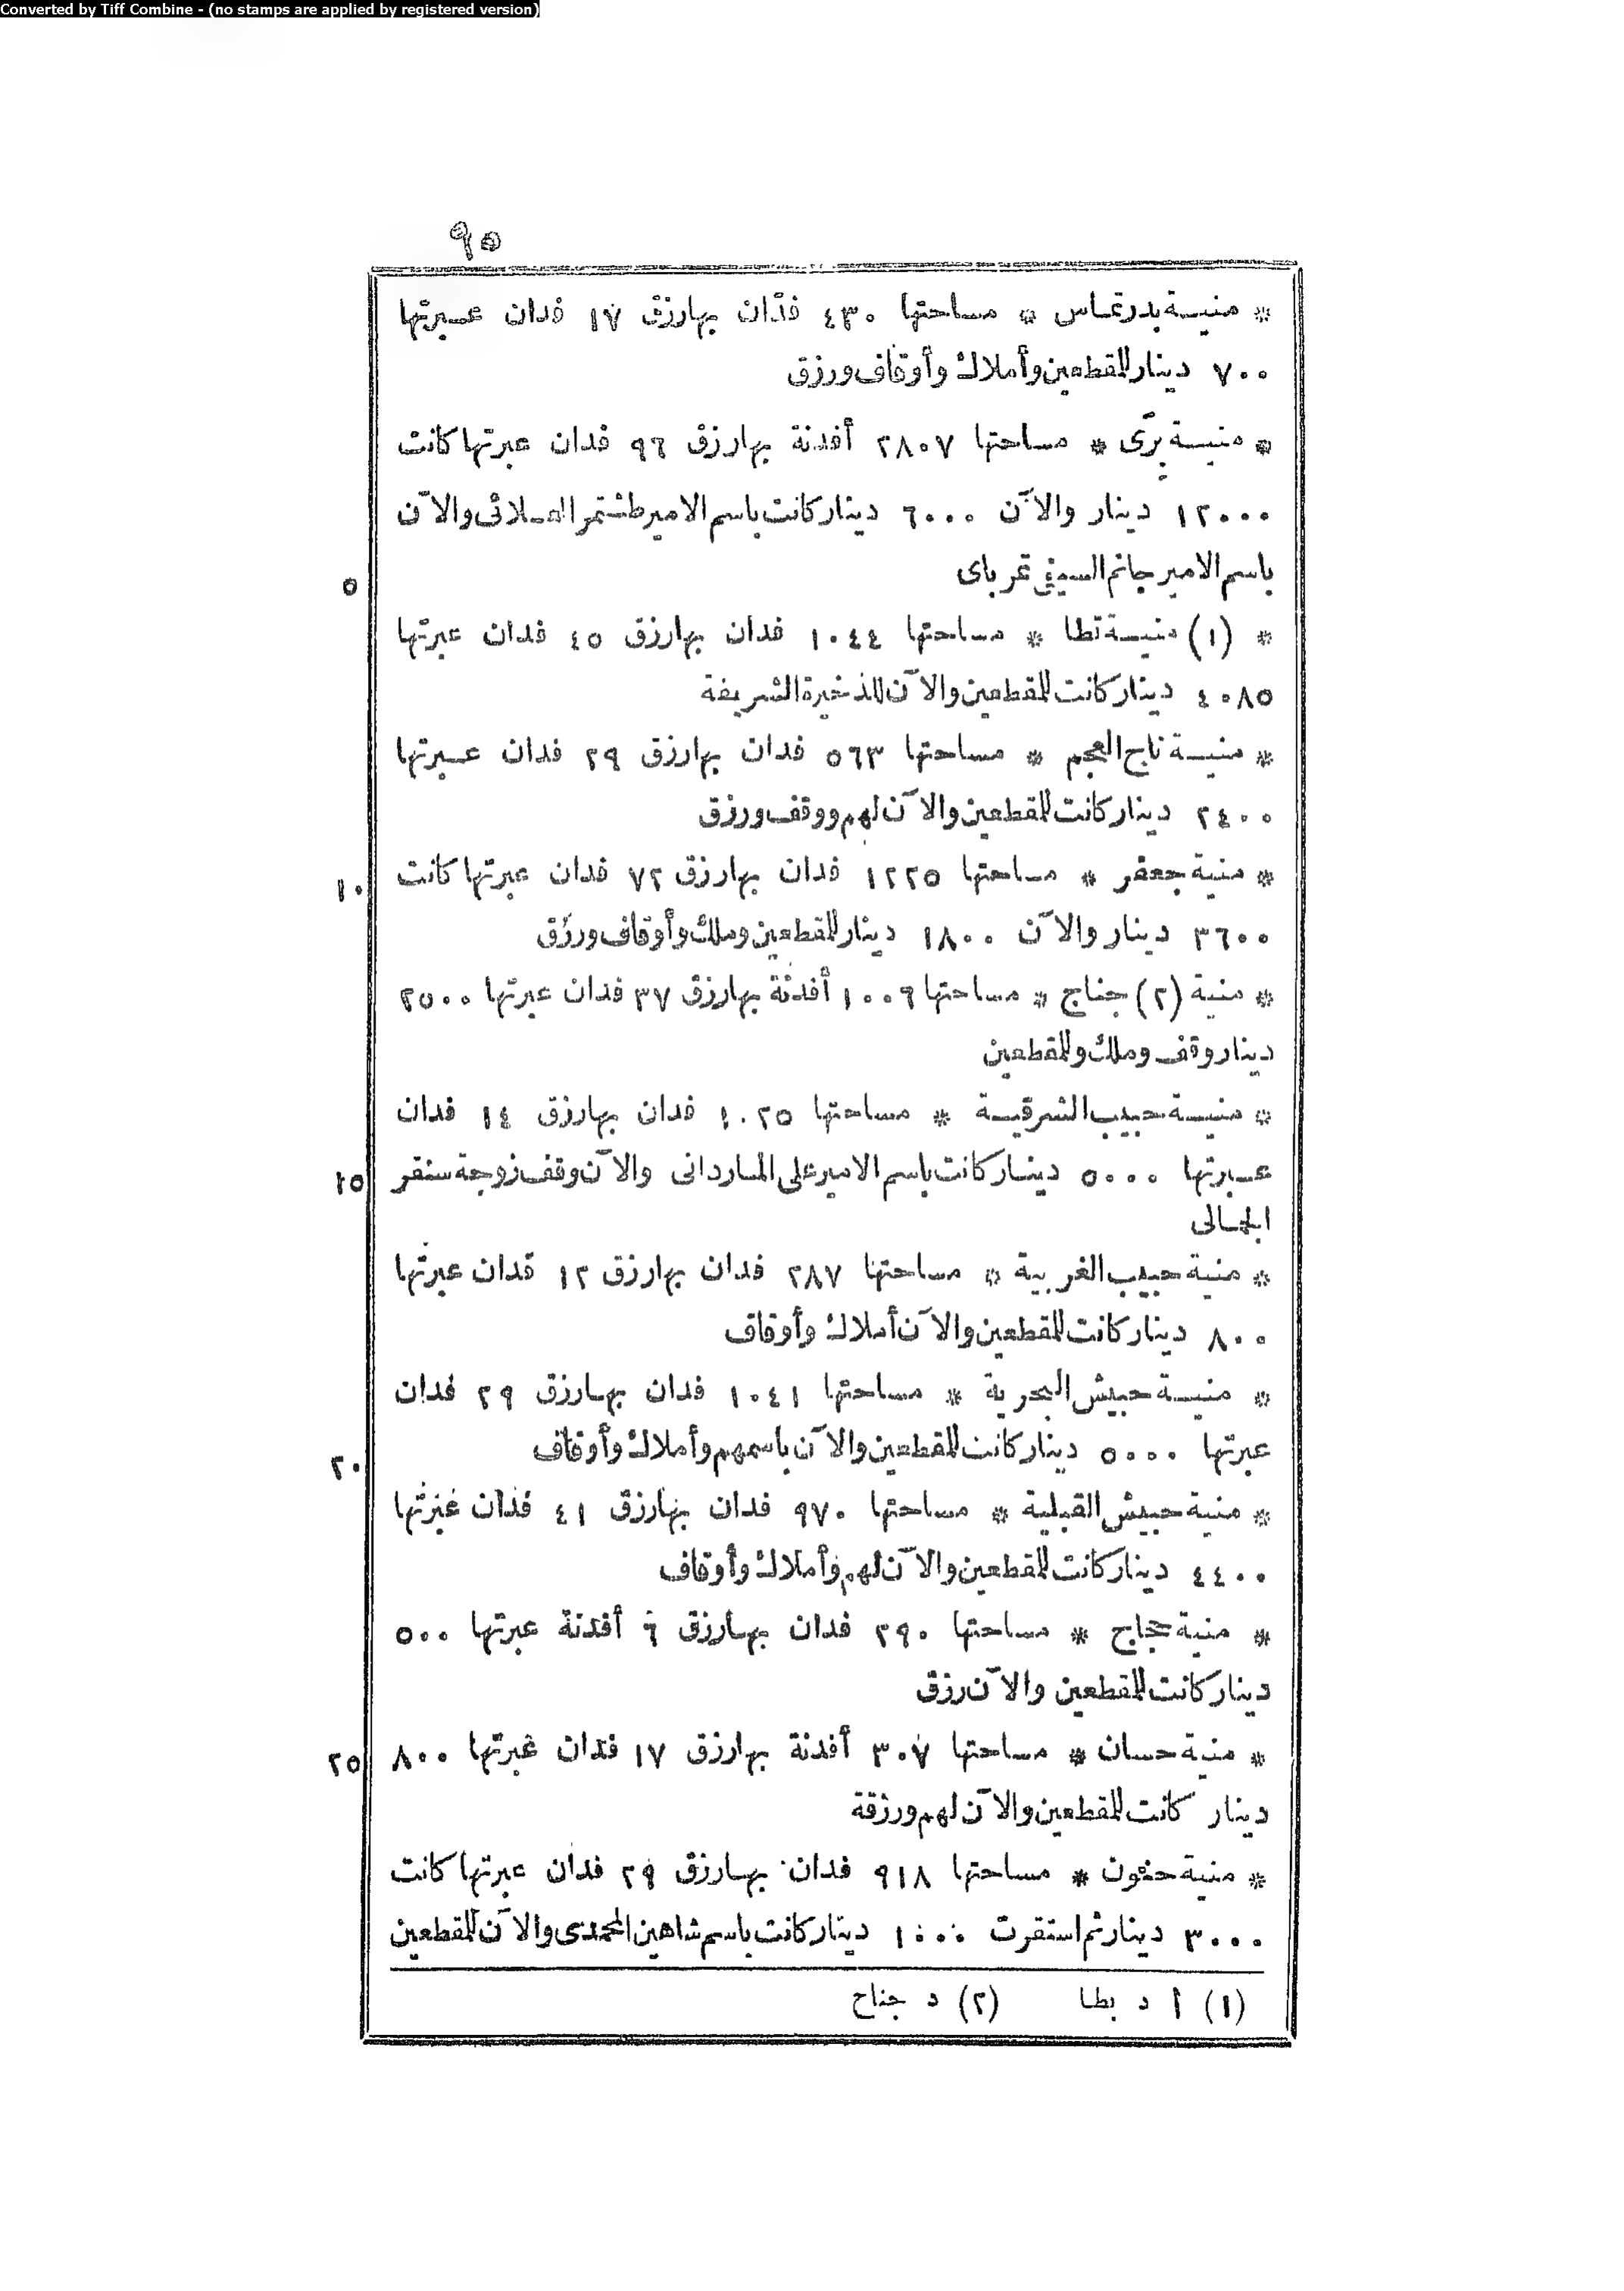 Converted by Tiff Combine - (no stamps are applied by registered version)
٩٥
* منيسة بدر تماس * مساحتها ٤٣٠ فدّان بها رزق ١٧ فدان عبرتها
٧٠٠ دينار للمقطعين وأملاك وأوقاف ورزق
* منيسة برّى * مساحتها ٢٨٠٧ أفدنة بها رزق ٩٦ فدان عبرتها كانت
١٢٠٠٠ دينار والآن ٦٠٠٠ دينار كانت باسم الامير طشتمر العلائى والآن
باسم الامير جانم السيفى تمر باى
٥
* (١) منيسة تطا * مساحتها ١٠٤٤ فدان بها رزق ٤٥ فدان عبرتها
٤٠٨٥ دينار كانت للمقطعين والآن للذخيرة الشريفة
* منيسة تاج العجم * مساحتها ٥٦٣ فدان بها رزق ٢٩ فدان عبرتها
٢٤٠٠ دينار كانت للمقطعين والآن لهم ووقف ورزق
* منية جعفر * مساحتها ١٢٢٥ فدان بها رزق ٧٢ فدان عبرتها كانت
١٠
٣٦٠٠ دينار والآن ١٨٠٠ دينار للمقطعين وملك وأوقاف ورزق
* منية (٢) جناج * مساحتها ١٠٠٩ أفدنة بها رزق ٣٧ فدان عبرتها ٢٥٠٠
دينار وقف وملك وللمقطعين
* منيسة حبيب الشرقيسة * مساحتها ١٠٢٥ فدان بها رزق ١٤ فدان
عبرتها ٥٠٠٠ دينار كانت باسم الامير على الماردانى والآن وقف زوجة سنقر
١٥
الجمالى
* منية حبيب الغربية * مساحتها ٢٨٧ فدان بها رزق ١٢ فدان عبرتها
٨٠٠ دينار كانت للمقطعين والآن أملاك وأوقاف
* منيسة حبيش البحرية * مساحتها ١٠٤١ فدان بها رزق ٢٩ فدان
عبرتها ٥٠٠٠ دينار كانت للمقطعين والآن باسمهم وأملاك وأوقاف
٢٠
* منية حبيش القبلية * مساحتها ٩٧٠ فدان بها رزق ٤١ فدان عبرتها
٤٤٠٠ دينار كانت للمقطعين والآن لهم وأملاك وأوقاف
* منية حجاج * مساحتها ٢٩٠ فدان بها رزق ٦ أفدنة عبرتها ٥٠٠
دينار كانت للمقطعين والآن رزق
* منية حسان * مساحتها ٣٠٧ أفدنة بها رزق ١٧ فدان عبرتها ٨٠٠
٢٥
دينار كانت للمقطعين والآن لهم ورزقة
* منية حفون * مساحتها ٩١٨ فدان بها رزق ٢٩ فدان عبرتها كانت
٣٠٠٠ دينار ثم استقرت ١٠٠٠ دينار كانت باسم شاهين المحمدى والآن للمقطعين
(١) أ د بطا (٢) د جناح